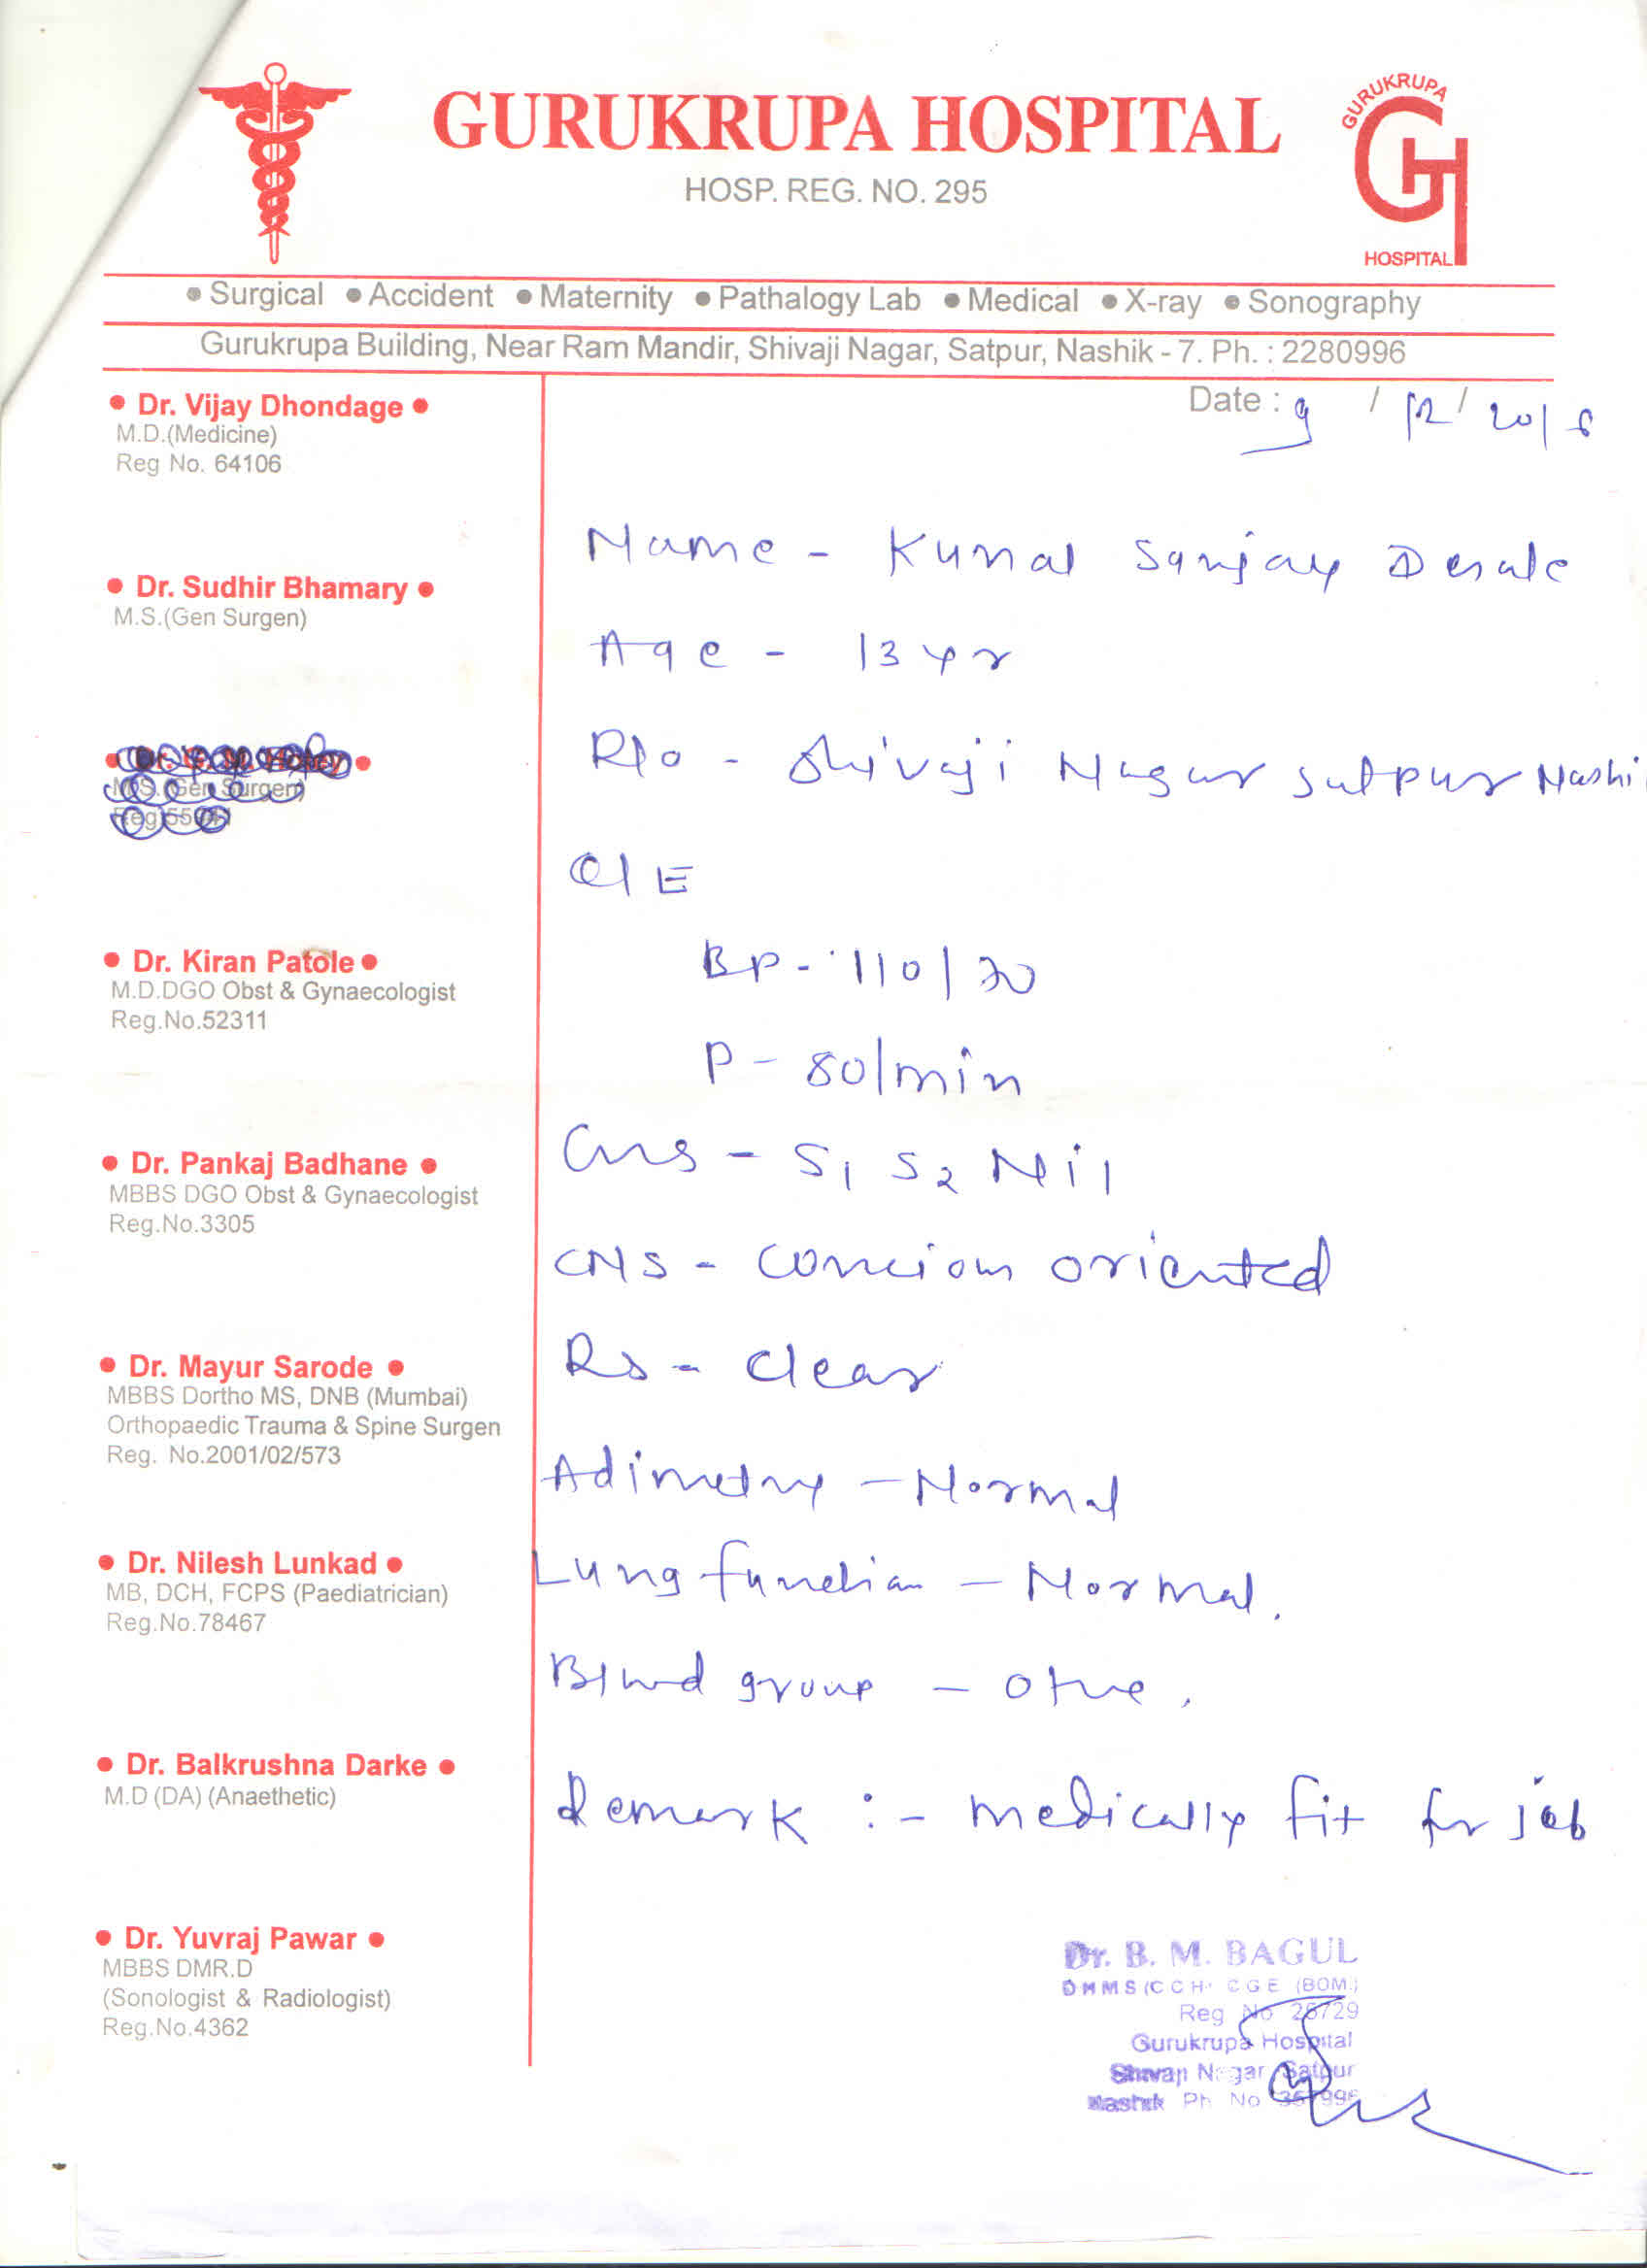 GURUKRUPA HOSPITAL
HOSP. REG. NO. 295
GURUKRUPA
GH
HOSPITAL
• Surgical • Accident • Maternity • Pathalogy Lab • Medical • X-ray • Sonography
Gurukrupa Building, Near Ram Mandir, Shivaji Nagar, Satpur, Nashik - 7. Ph. : 2280996
• Dr. Vijay Dhondage •
M.D.(Medicine)
Reg No. 64106
• Dr. Sudhir Bhamary •
M.S.(Gen Surgen)
M.S.(Gen Surgen)
• Dr. Kiran Patole •
M.D.DGO Obst & Gynaecologist
Reg.No.52311
• Dr. Pankaj Badhane •
MBBS DGO Obst & Gynaecologist
Reg.No.3305
• Dr. Mayur Sarode •
MBBS Dortho MS, DNB (Mumbai)
Orthopaedic Trauma & Spine Surgen
Reg. No.2001/02/573
• Dr. Nilesh Lunkad •
MB, DCH, FCPS (Paediatrician)
Reg.No.78467
• Dr. Balkrushna Darke •
M.D (DA) (Anaethetic)
• Dr. Yuvraj Pawar •
MBBS DMR.D
(Sonologist & Radiologist)
Reg.No.4362
Date : 9 / 12 / 2018
Name - Kunal Sanjay Desale
Age - 13 yr
R/o - Shivaji Nagar Satpur Nashi
O/E
BP - 110/70
P - 80/min
Cvs - S1 S2 Nil
CNS - Concious oriented
Rs - Clear
Adimetry - Normal
Lung function - Normal.
Blood group - O +ve.
Remark :- Medically fit for job
Dr. B. M. BAGUL
DHMS (CCH) CGE (BOM.)
Reg No 26729
Gurukrupa Hospital
Shivaji Nagar Satpur
Nashik Ph No